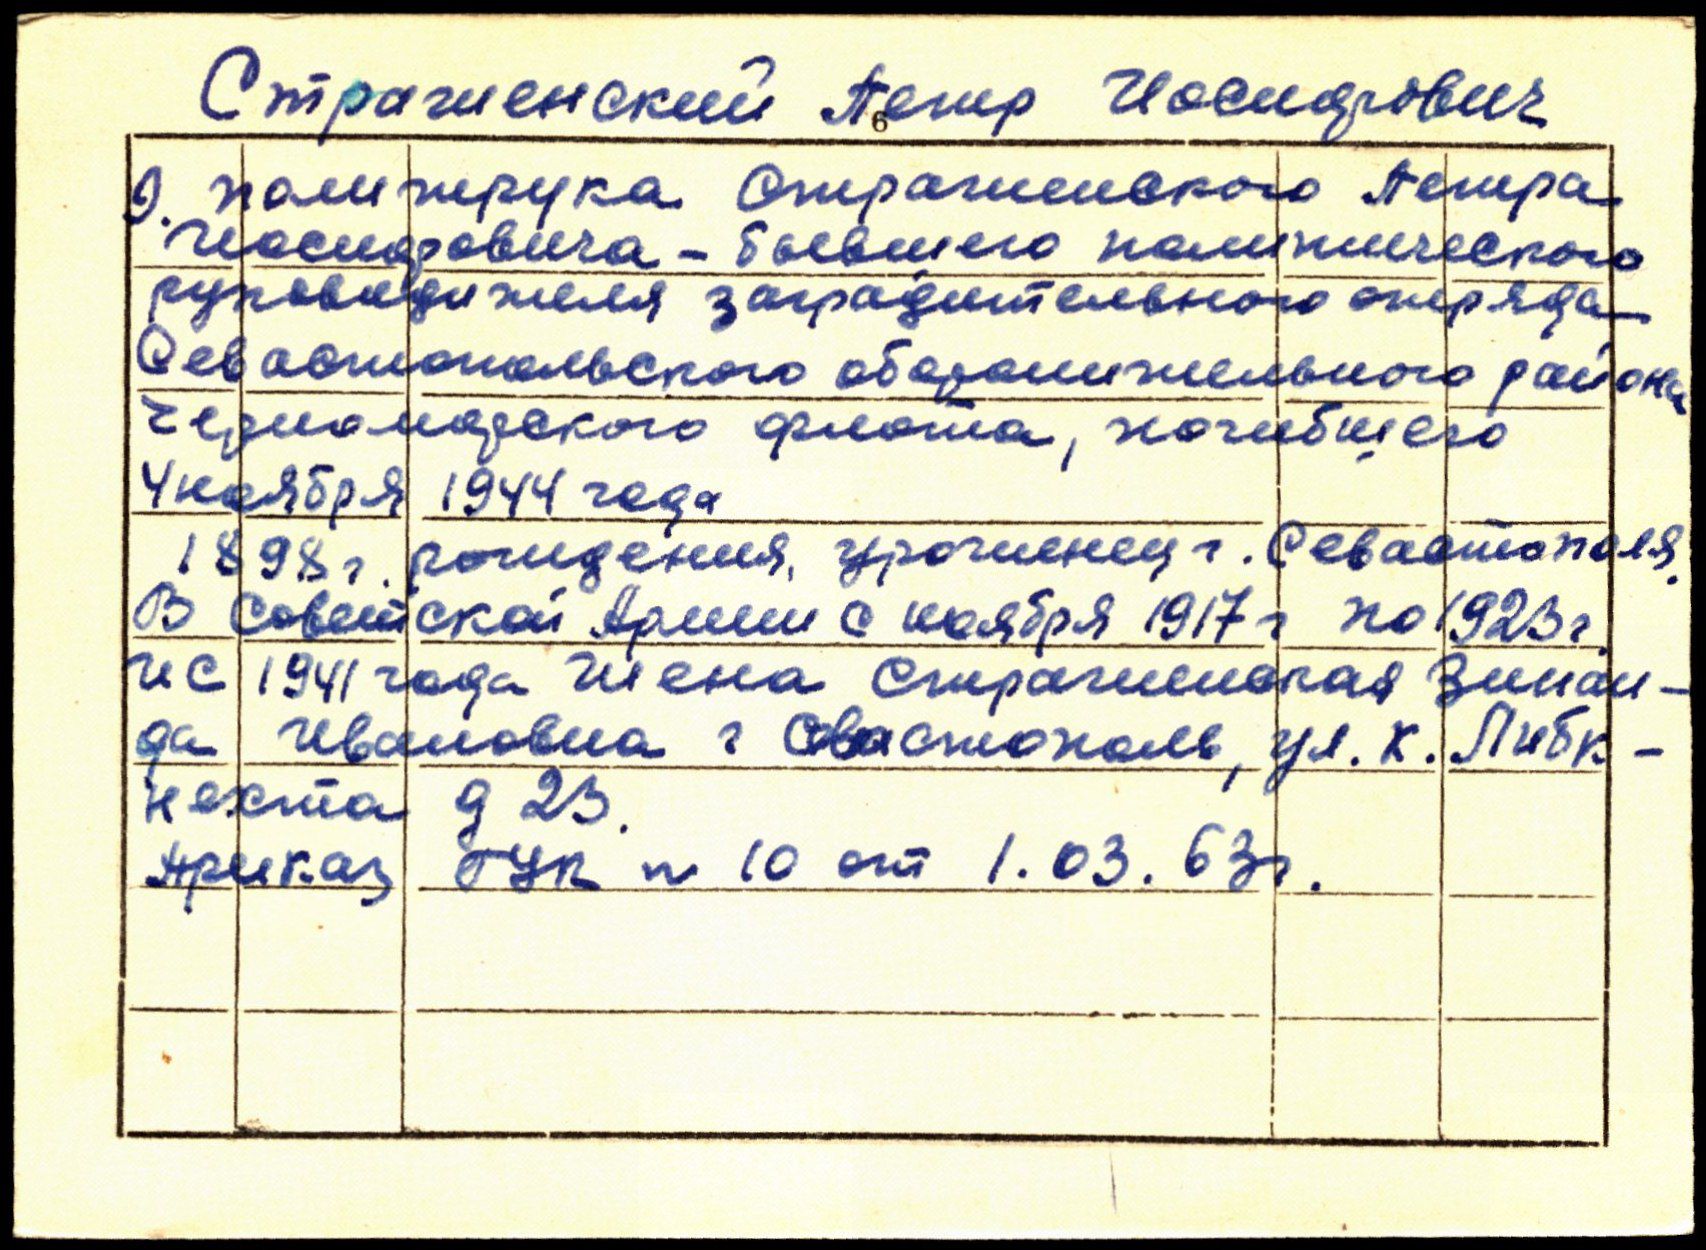 Страженский Петр Иосифович
6
9. политрука Страженского Петра
Иосифовича – бывшего политического
руководителя заградительного отряда
Севастопольского оборонительного района
Черноморского флота, погибшего
4 ноября 1944 года
1898 г. рождения, уроженец г. Севастополя.
В Советской Армии с ноября 1917 г по 1923 г
и с 1941 года Жена Страженская Зинаи-
да Ивановна г Севастополь, ул. К. Либк-
нехта д 23.
Приказ ГУК № 10 от 1.03.63 г.